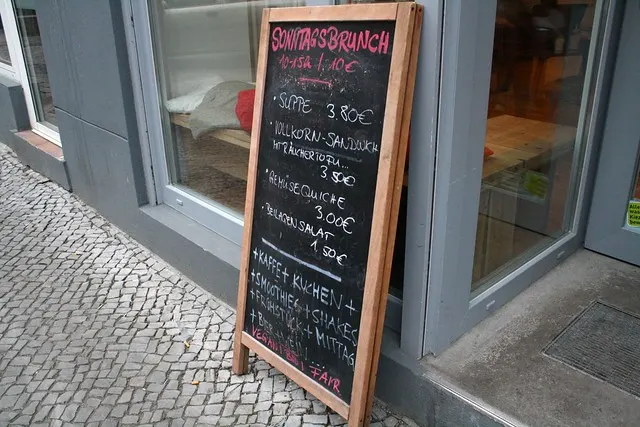 SONNTAGSBRUNCH
10-15h | 10€
• SUPPE 3.80€
• VOLLKORN-SANDWICH
MIT RÄUCHERTOFU...
3,50€
• GEMÜSEQUICHE
3.00€
• BEILAGENSALAT
1.50€
+KAFFE+ KUCHEN+
+SMOOTHIES+SHAKES
+FRÜHSTÜCK+MITTAG
VEGAN! FAIR